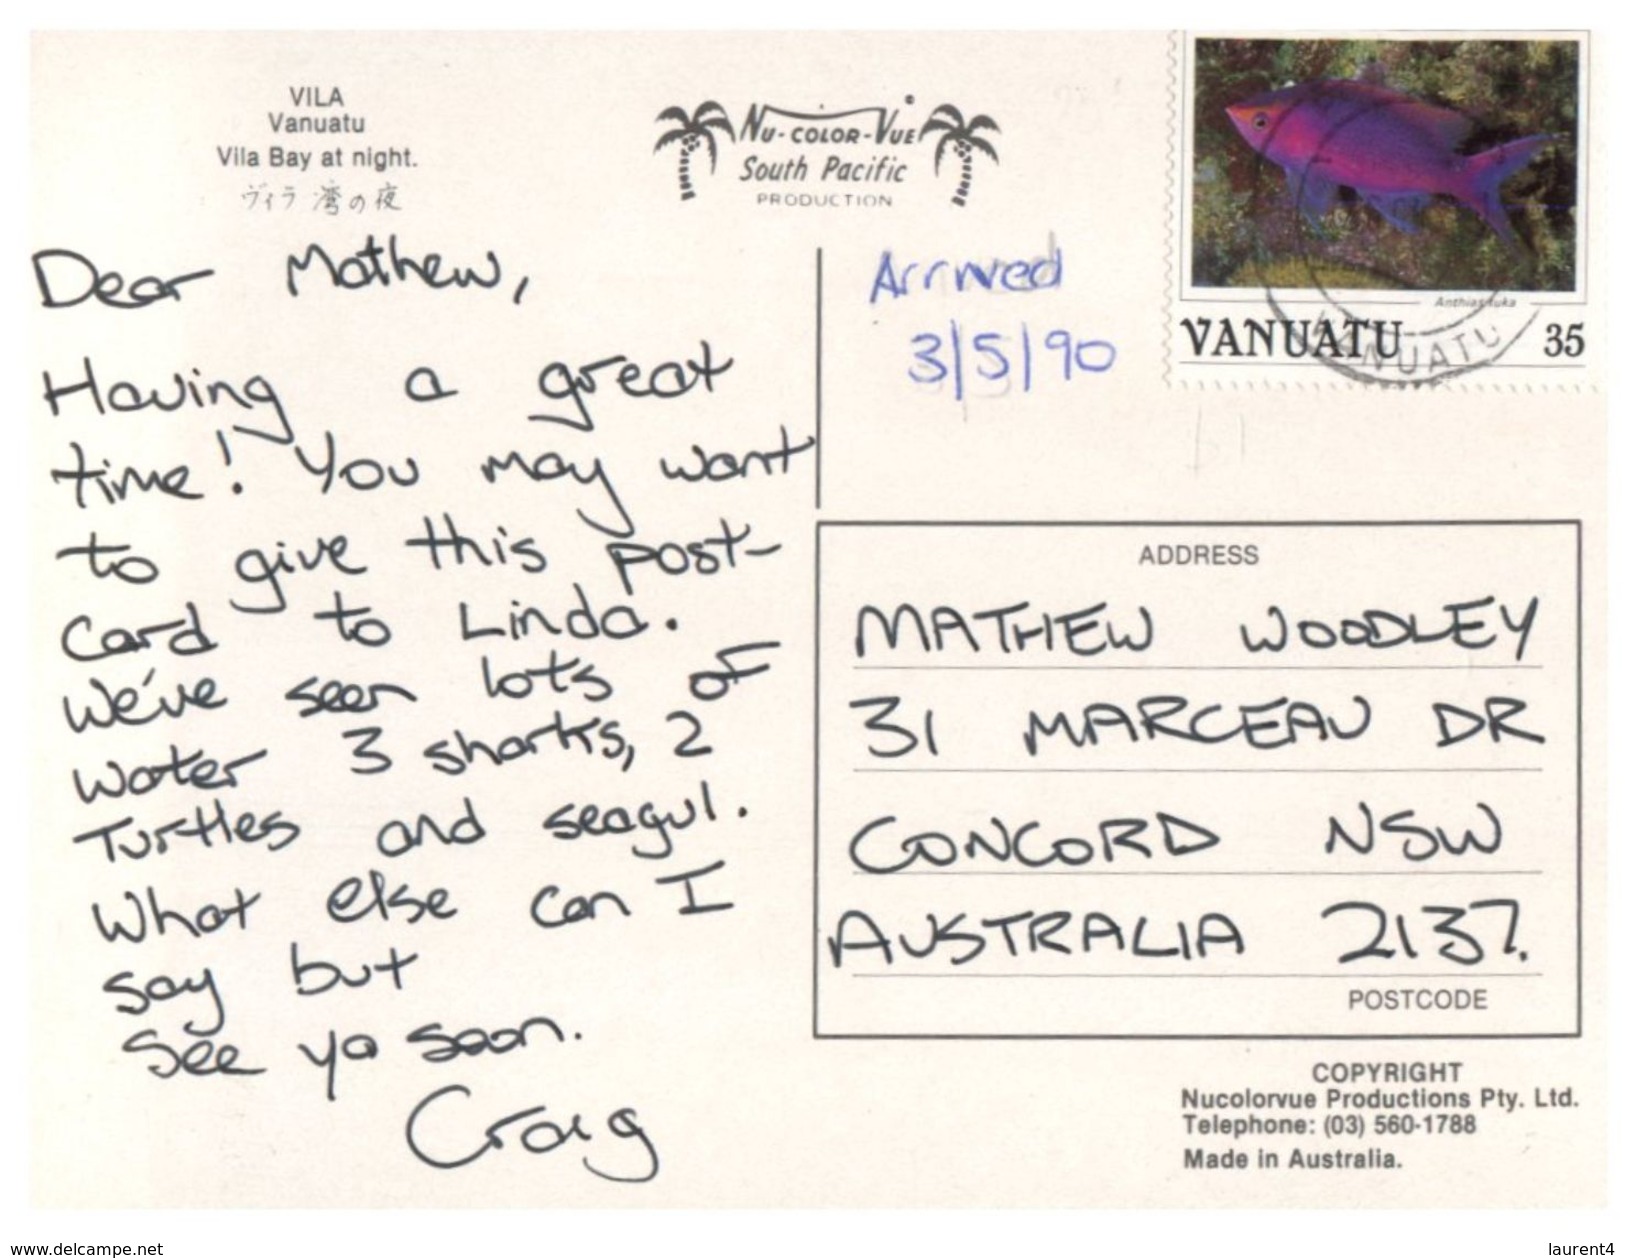 VILA
Vanuatu
Vila Bay at night.
ヴィラ 湾の夜
NU-COLOR-VUE®
South Pacific
PRODUCTION
Anthias tuka
VANUATU 35
VANUATU
Dear Mathew,
Having a great
time! You may want
to give this post-
card to Linda.
We've seen lots of
water 3 sharks, 2
Turtles and seagul.
What else can I
say but
See ya soon.
Craig
Arrived
3/5/90
ADDRESS
MATHEW WOODLEY
31 MARCEAU DR
CONCORD NSW
AUSTRALIA 2137.
POSTCODE
COPYRIGHT
Nucolorvue Productions Pty. Ltd.
Telephone: (03) 560-1788
Made in Australia.
www.delcampe.net
laurent4